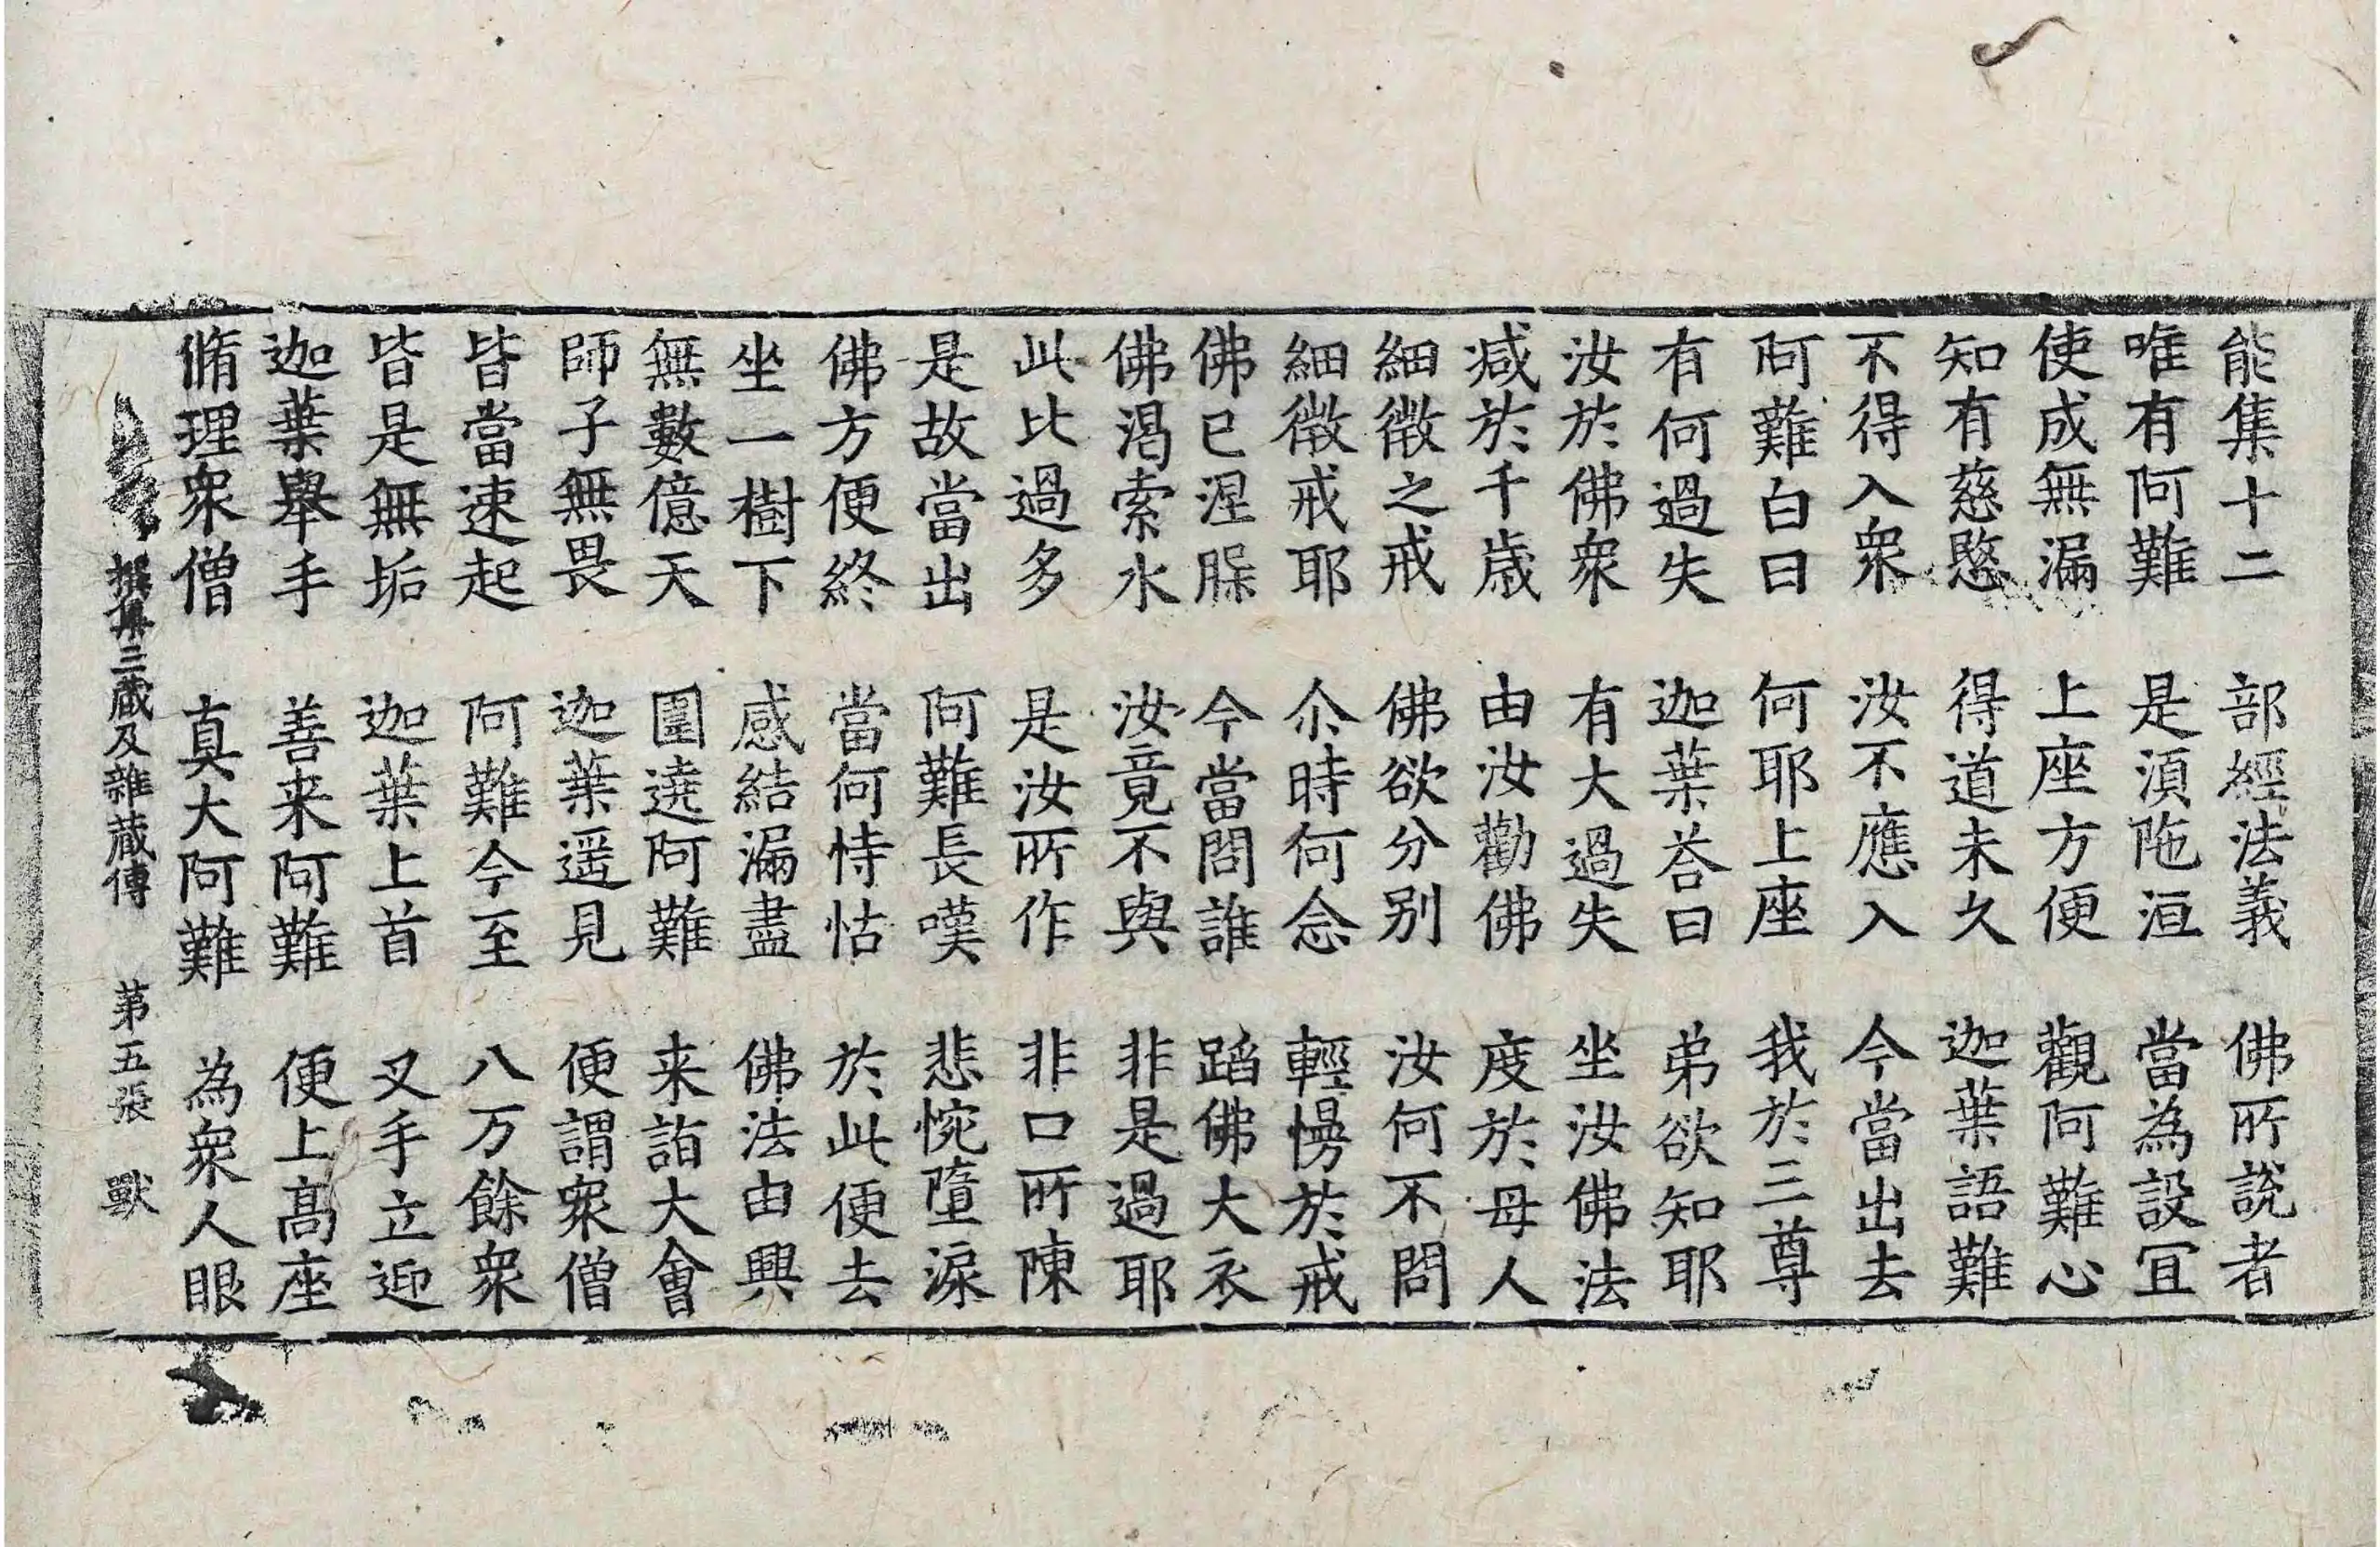 能集十二　部經法義　佛所說者
唯有阿難　是湏陁洹　當為設冝
使成無漏　上座方便　觀阿難心
知有慈愍　得道未久　迦葉語難
不得入衆　汝不應入　今當出去
阿難白曰　何耶上座　我於三尊
有何過失　迦葉荅曰　弟欲知耶
汝於佛衆　有大過失　坐汝佛法
减於千歳　由汝勸佛　度於母人
細微之戒　佛欲分别　汝何不問
細微戒耶　尒時何念　輕慢於戒
佛已涅　今當問誰　蹈佛大衣
佛渴索水　汝竟不與　非是過耶
此比過多　是汝所作　非口所陳
是故當出　阿難長嘆　悲惋墮淚
佛方便終　當何恃怙　於此便去
坐一樹下　感結漏盡　佛法由興
無數億天　圍遶阿難　来詣大會
師子無畏　迦葉遥見　便謂衆僧
皆當速起　阿難今至　八万餘衆
皆是無垢　迦葉上首　叉手立迎
迦葉舉手　善来阿難　便上髙座
脩理衆僧　真大阿難　為衆人眼
撰集三蔵及雜蔵傳　第五張　獸